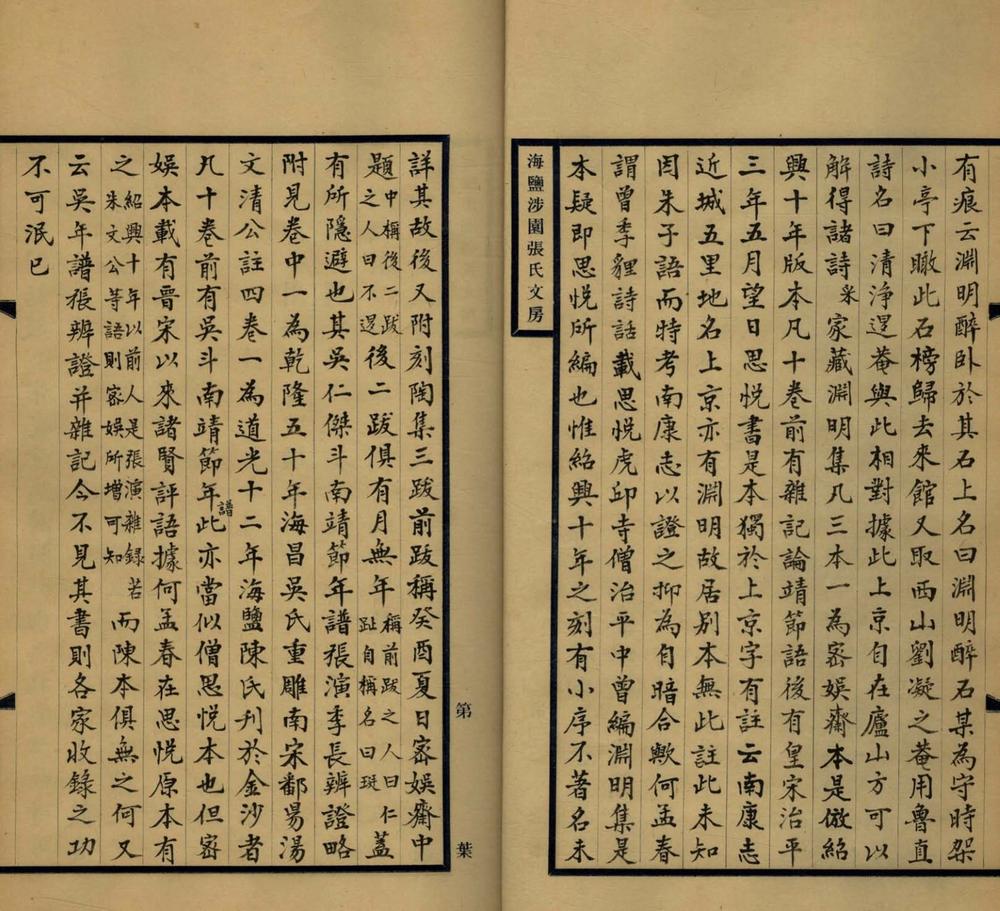 有痕云淵明醉臥於其石上名曰淵明醉石某為守時架
小亭下瞰此石榜歸去來館又取西山劉凝之菴用魯直
詩名曰清淨退菴與此相對據此上京自在廬山方可以
解得諸詩采家藏淵明集凡三本一為密娛齋本是倣紹
興十年版本凡十卷前有雜記論靖節語後有皇宋治平
三年五月望日思悅書是本獨於上京字有註云南康志
近城五里地名上京亦有淵明故居別本無此註此未知
因朱子語而特考南康志以證之抑為自暗合歟何孟春
謂曾季貍詩話載思悅虎邱寺僧治平中曾編淵明集是
本疑即思悅所編也惟紹興十年之刻有小序不著名未
海鹽涉園張氏文房
詳其故後又附刻陶集三跋前跋稱癸酉夏日密娛齋中
題中稱後二跋之人曰不退後二跋俱有月無年稱前跋之人曰仁趾自稱名曰珽蓋
有所隱避也其吳仁傑斗南靖節年譜張演季長辨證略
附見卷中一為乾隆五十年海昌吳氏重雕南宋鄱昜湯
文清公註四卷一為道光十二年海鹽陳氏刊於金沙者
凡十卷前有吳斗南靖節年譜此亦當似僧思悅本也但密
娛本載有晋宋以來諸賢評語據何孟春在思悅原本有
之紹興十年以前人是張演雜錄若朱文公等語則密娛所增可知而陳本俱無之何又
云吳年譜張辨證并雜記今不見其書則各家收錄之功
不可泯已
第 葉